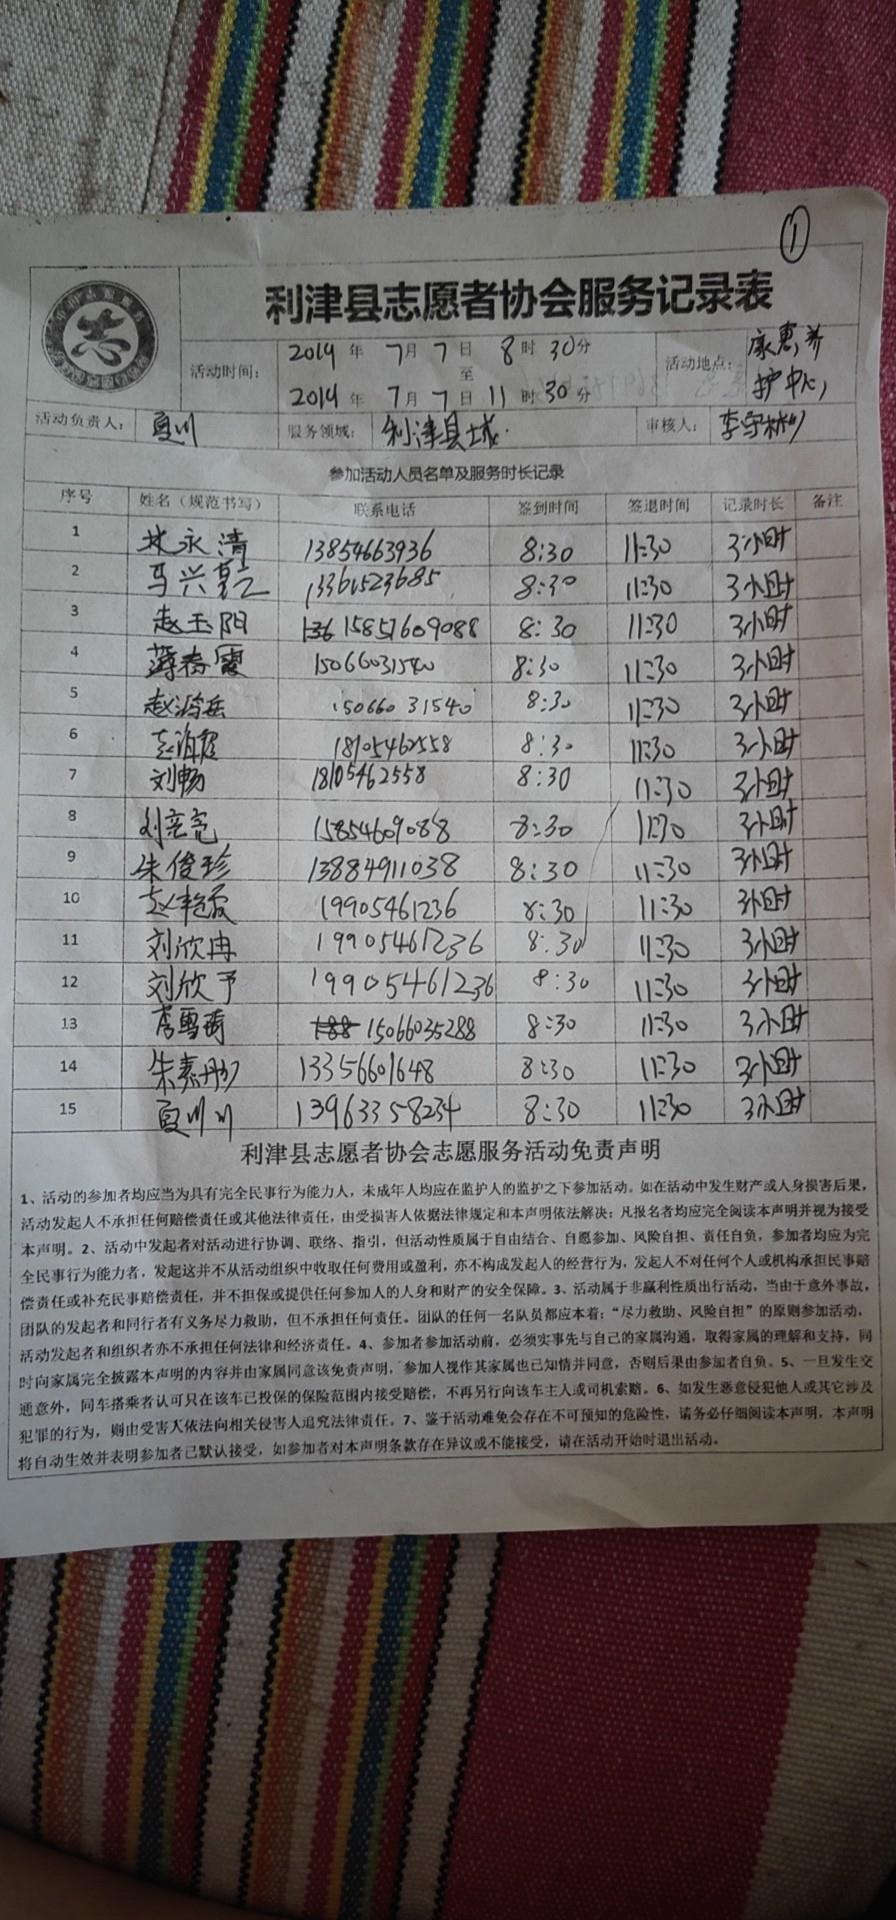 ①
利津县志愿者协会服务记录表
活动时间： 2019 年 7月 7日 8时 30分
至
2019 年 7月 7日 11时 30分
活动地点： 康惠养护中心
活动负责人： 夏川 服务领域： 利津县城 审核人：
参加活动人员名单及服务时长记录
序号 姓名（规范书写） 联系电话 签到时间 签退时间 记录时长 备注
1 永清 13854663936 8:30 11:30 3小时
2 马兴 8:30 11:30 3小时
3 赵玉阳 15851609088 8:30 11:30 3小时
4 薄春霞 15066031540 8:30 11:30 3小时
5 15066031540 8:30 11:30 3小时
6 18105462558 8:30 11:30 3小时
7 刘畅 18105462558 8:30 11:30 3小时
8 刘亮亮 15854609088 8:30 11:30 3小时
9 朱俊珍 13884911038 8:30 11:30 3小时
10 赵艳霞 19905461236 8:30 11:30 3小时
11 刘欣冉 19905461236 8:30 11:30 3小时
12 刘欣予 19905461236 8:30 11:30 3小时
13 15066035288 8:30 11:30 3小时
14 朱嘉丹 13356601648 8:30 11:30 3小时
15 夏川川 13963358234 8:30 11:30 3小时
利津县志愿者协会志愿服务活动免责声明
1、活动的参加者均应当为具有完全民事行为能力人，未成年人均应在监护人的监护之下参加活动。如在活动中发生财产或人身损害后果，
活动发起人不承担任何赔偿责任或其他法律责任，由受损害人依据法律规定和本声明依法解决；凡报名者均应完全阅读本声明并视为接受
本声明。2、活动中发起者对活动进行协调、联络、指引，但活动性质属于自由结合、自愿参加、风险自担、责任自负，参加者均应为完
全民事行为能力者，发起这并不从活动组织中收取任何费用或盈利，亦不构成发起人的经营行为，发起人不对任何个人或机构承担民事赔
偿责任或补充民事赔偿责任，并不担保或提供任何参加人的人身和财产的安全保障。3、活动属于非赢利性质出行活动，当由于意外事故，
团队的发起者和同行者有义务尽力救助，但不承担任何责任。团队的任何一名队员都应本着：“尽力救助、风险自担”的原则参加活动，
活动发起者和组织者亦不承担任何法律和经济责任。4、参加者参加活动前，必须实事先与自己的家属沟通，取得家属的理解和支持，同
时向家属完全披露本声明的内容并由家属同意该免责声明，参加人视作其家属也已知情并同意，否则后果由参加者自负。5、一旦发生交
通意外，同车搭乘者认可只在该车已投保的保险范围内接受赔偿，不再另行向该车主人或司机索赔。6、如发生恶意侵犯他人或其它涉及
犯罪的行为，则由受害人依法向相关侵害人追究法律责任。7、鉴于活动难免会存在不可预知的危险性，请务必仔细阅读本声明，本声明
将自动生效并表明参加者已默认接受，如参加者对本声明条款存在异议或不能接受，请在活动开始时退出活动。